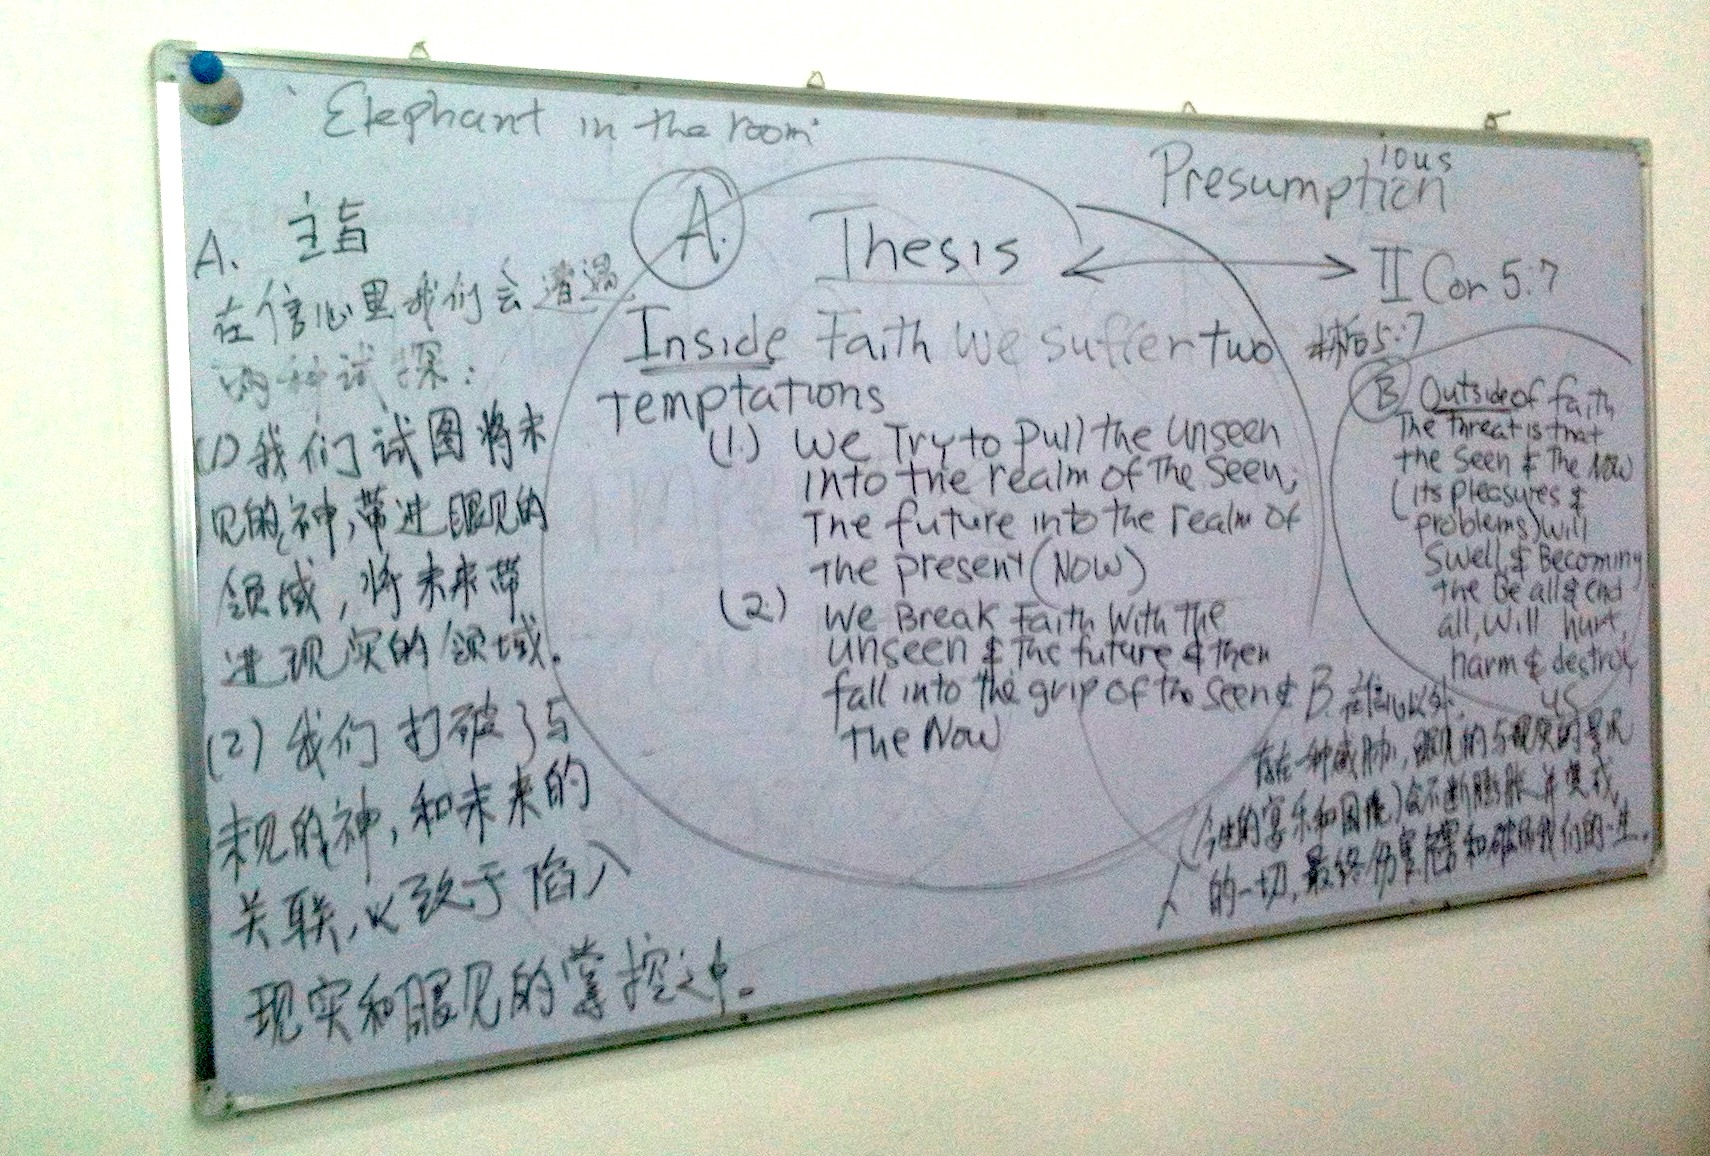 'Elephant in the room'
Presumption
ious
A. 主旨
在信心里我们会遭遇
两种试探:
(1) 我们试图将未
见的神,带进眼见的
领域,将未来带
进现实的领域.
(2) 我们打破了与
未见的神,和未来的
关联,以致于陷入
现实和眼见的掌控之中.
A.
Thesis
II Cor 5:7
林后5:7
Inside Faith We suffer two
Temptations
(1.) We Try to Pull the Unseen
into the realm of The Seen;
The future into the realm of
The present (Now)
(2.) We Break Faith With the
Unseen & The future & then
fall into the grip of the seen &
the Now
B Outside of faith
The threat is that
the Seen & The Now
(its pleasures &
problems) will
Swell, & Becoming
the Be all & end
all, Will hurt,
harm & destroy
us
B. 在信心以外,
存在一种威胁,眼见的与现实的景况
(今生的享乐和困难)会不断膨胀并变成
人的一切,最终伤害 和破坏我们的一生.